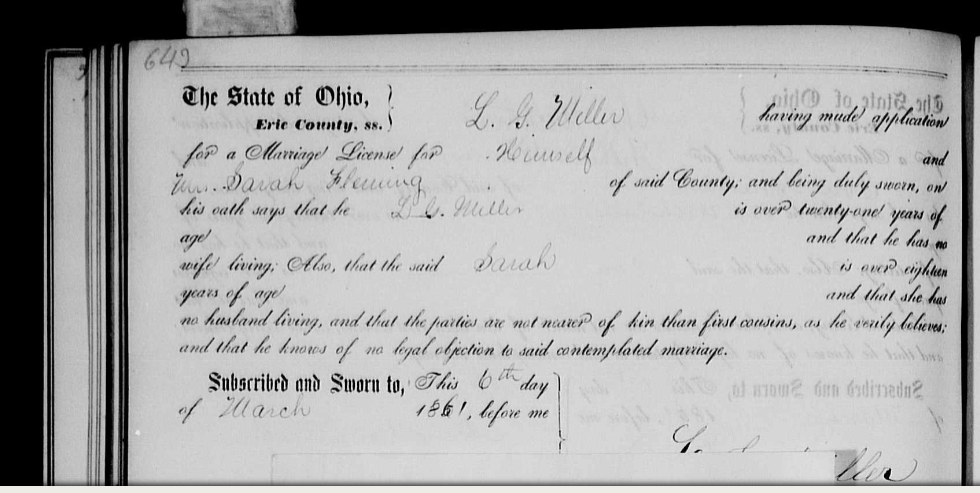 649
The State of Ohio, }
Erie County, ss. } L. G. Miller having made application
for a Marriage License for Himself and
Mrs. Sarah Fleming of said County; and being duly sworn, on
his oath says that he L. G. Miller is over twenty-one years of
age and that he has no
wife living; Also, that the said Sarah is over eighteen
years of age and that she has
no husband living, and that the parties are not nearer of kin than first cousins, as he verily believes;
and that he knows of no legal objection to said contemplated marriage.
Subscribed and Sworn to, This 6th day
of March 1861, before me